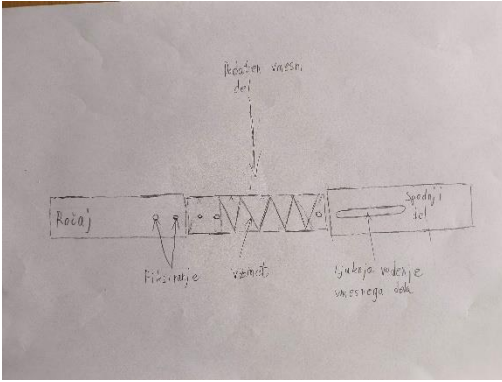 Dodaten vmesni
del
Ročaj
Spodnji
del
Fiksiranje
vzmet
luknja vodenje
vmesnega dela